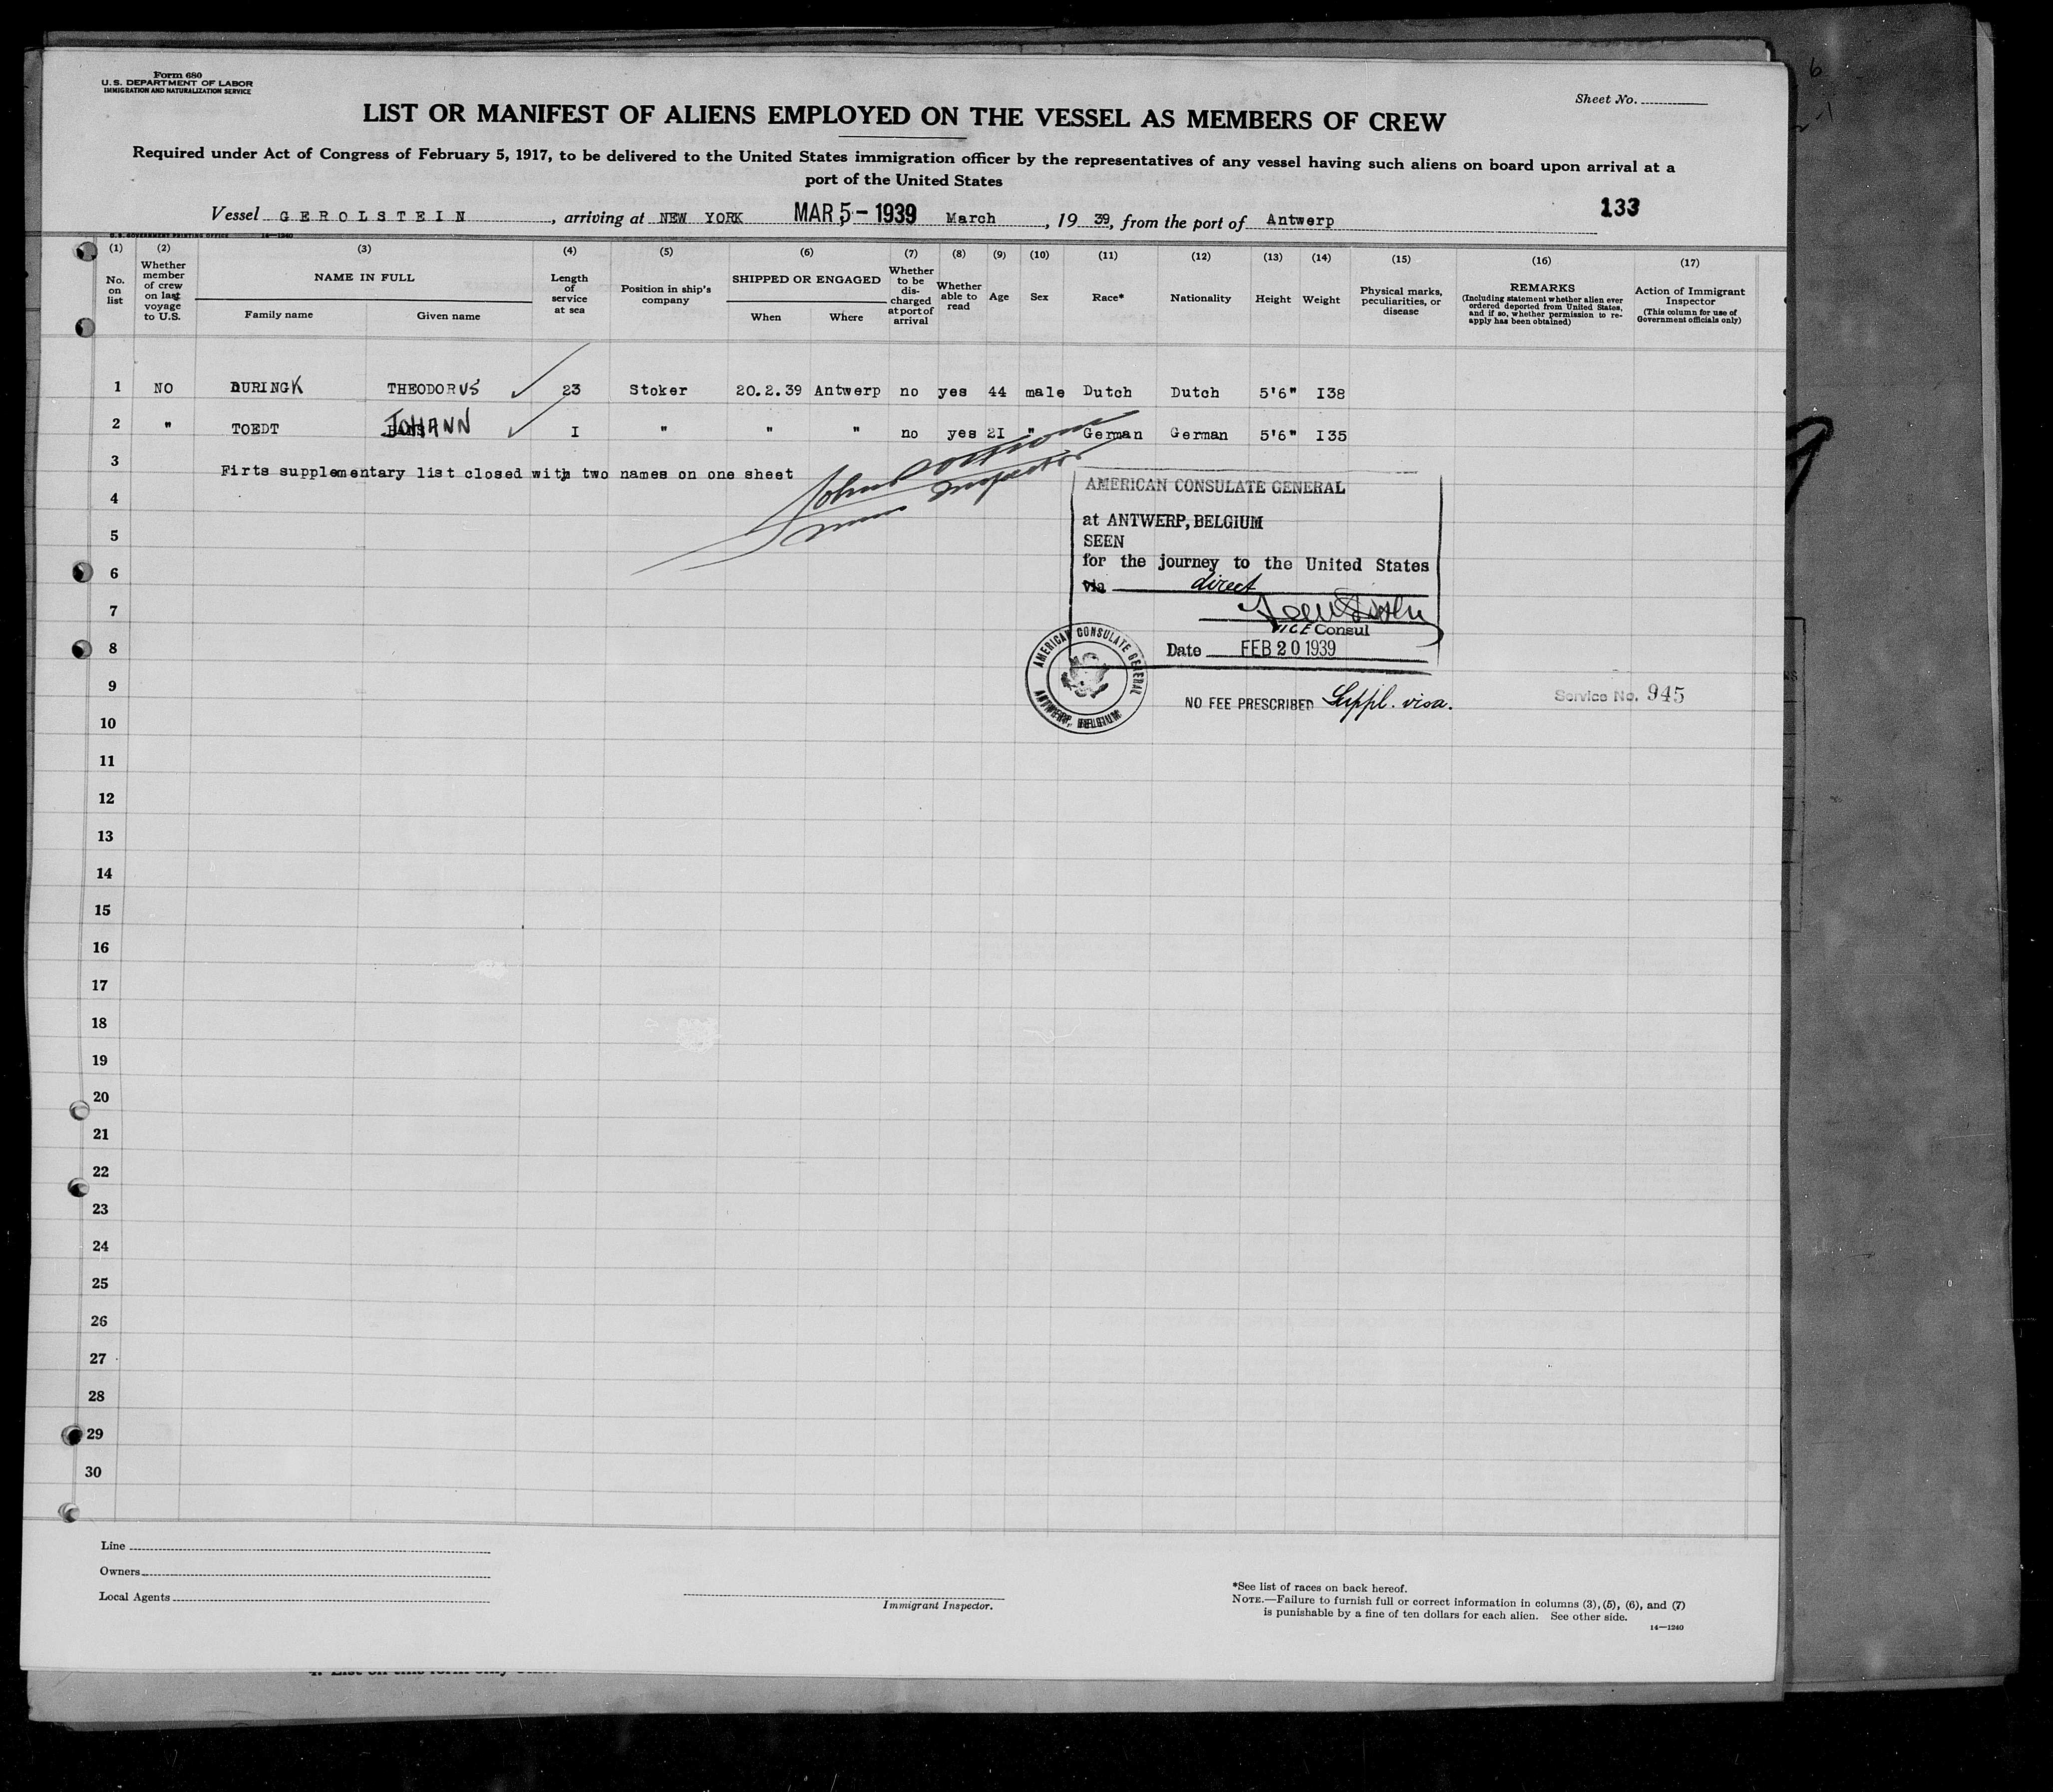 Form 680
U. S. DEPARTMENT OF LABOR
IMMIGRATION AND NATURALIZATION SERVICE
Sheet No.
LIST OR MANIFEST OF ALIENS EMPLOYED ON THE VESSEL AS MEMBERS OF CREW
Required under Act of Congress of February 5, 1917, to be delivered to the United States immigration officer by the representatives of any vessel having such aliens on board upon arrival at a
port of the United States
133
Vessel GEROLSTEIN , arriving at NEW YORK MAR 5 - 1939 March , 19 39, from the port of Antwerp
U. S. GOVERNMENT PRINTING OFFICE 14—1240
(1) (2) (3) (4) (5) (6) (7) (8) (9) (10) (11) (12) (13) (14) (15) (16) (17)
No. on list
Whether member of crew on last voyage to U.S.
NAME IN FULL
Family name Given name
Length of service at sea
Position in ship's company
SHIPPED OR ENGAGED
When Where
Whether to be discharged at port of arrival
Whether able to read
Age
Sex
Race*
Nationality
Height
Weight
Physical marks, peculiarities, or disease
REMARKS
(Including statement whether alien ever ordered deported from United States, and if so, whether permission to re-apply has been obtained)
Action of Immigrant Inspector
(This column for use of Government officials only)
1 NO BURINGK THEODORUS 23 Stoker 20.2.39 Antwerp no yes 44 male Dutch Dutch 5'6" I38
2 " TOEDT JOHANN I " " " no yes 2I " German German 5'6" I35
3 Firts supplementary list closed with two names on one sheet
Inspector
AMERICAN CONSULATE GENERAL
at ANTWERP, BELGIUM
SEEN
for the journey to the United States
via direct
VICE Consul
Date FEB 20 1939
AMERICAN CONSULATE GENERAL
ANTWERP, BELGIUM
NO FEE PRESCRIBED Suppl. visa.
Service No. 945
4
5
6
7
8
9
10
11
12
13
14
15
16
17
18
19
20
21
22
23
24
25
26
27
28
29
30
Line
Owners
Local Agents
Immigrant Inspector.
*See list of races on back hereof.
NOTE.—Failure to furnish full or correct information in columns (3), (5), (6), and (7)
is punishable by a fine of ten dollars for each alien. See other side.
14—1240